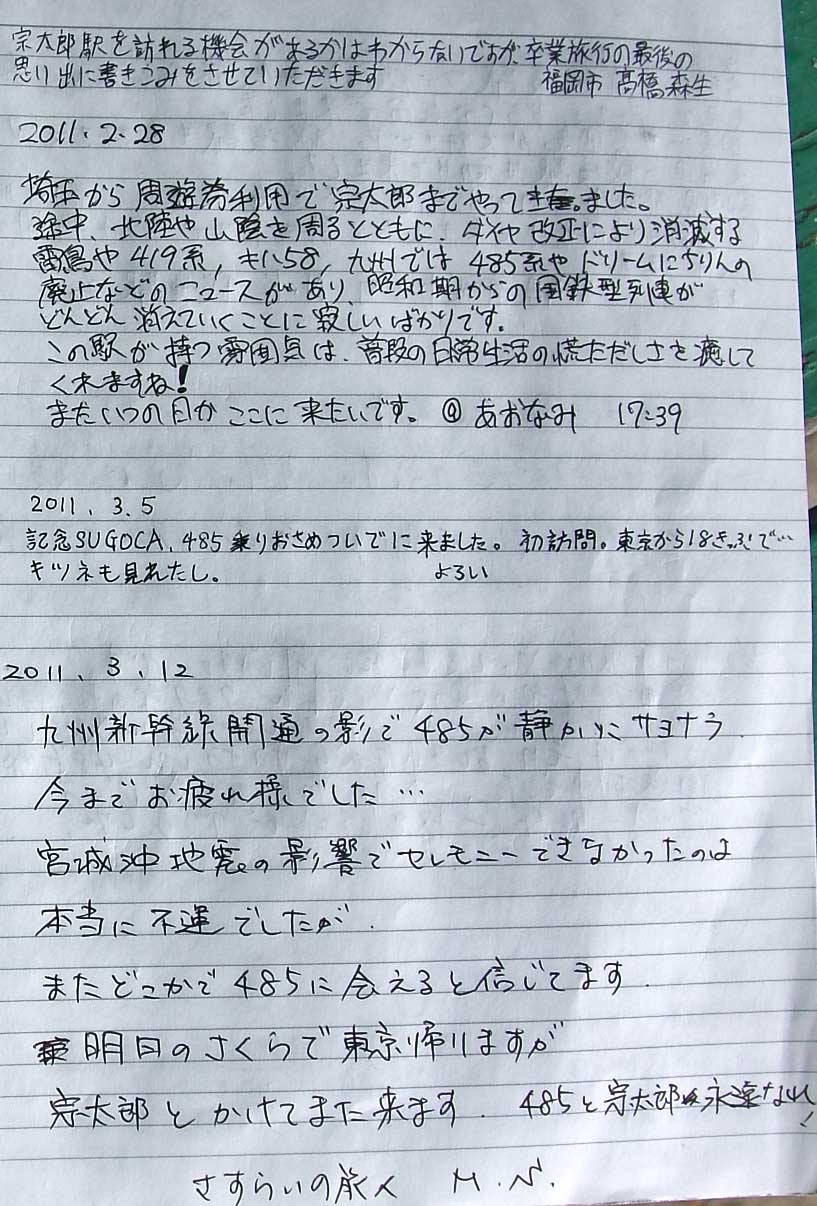 宗太郎駅を訪れる機会があるかはわからないですが、卒業旅行の最後の
思い出に書きこみをさせていただきます 福岡市 髙橋森生
2011.2.28
埼玉から周遊券利用で宗太郎までやって来ました。
途中、北陸や山陰を周るとともに、ダイヤ改正により消滅する
雷鳥や419系,キハ58,九州では485系やドリームにちりんの
廃止などのニュースがあり、昭和期からの国鉄型列車が
どんどん消えていくことに寂しいばかりです。
この駅が持つ雰囲気は、普段の日常生活の慌ただしさを癒して
くれますね!
またいつの日かここに来たいです。@あおなみ 17:39
2011.3.5
記念SUGOCA、485乗りおさめついでに来ました。初訪問。東京から18きっぷで…
キツネも見れたし。 よろい
2011.3.12
九州新幹線開通の影で485が静かにサヨナラ.
今までお疲れ様でした…
宮城沖地震の影響でセレモニーできなかったのは
本当に不運でしたが.
またどこかで485に会えると信じてます.
明日のさくらで東京帰りますが
宗太郎とかけてまた来ます. 485と宗太郎永遠なれ!
さすらいの旅人 M.N.